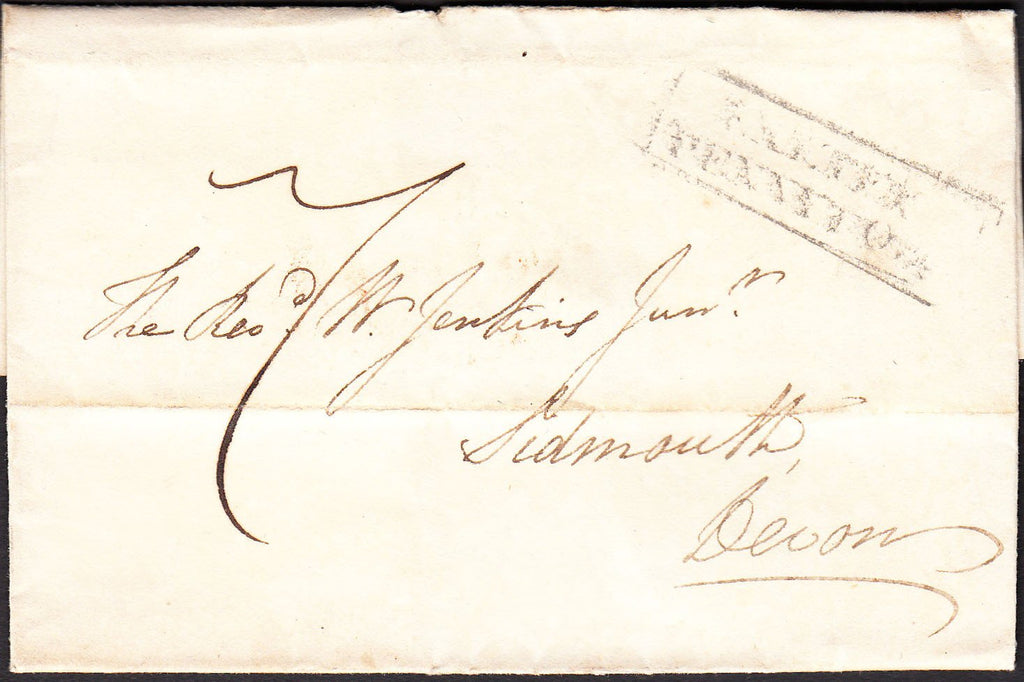 PENNY POST
7
The Revd. W. Jenkins Junr.
Sidmouth,
Devon